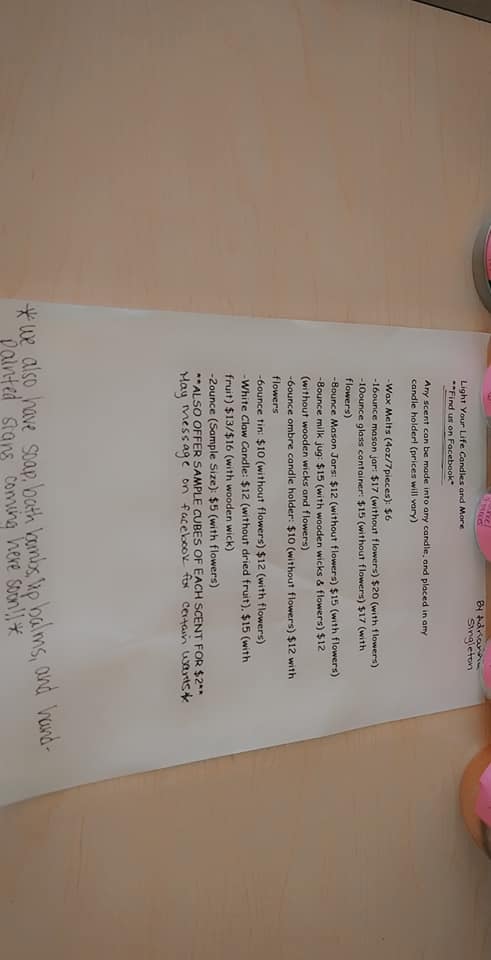 By Adrianna
Singleton
Light Your Life Candles and More
**Find us on Facebook*
Any scent can be made into any candle, and placed in any
candle holder! (prices will vary)
-Wax Melts (4oz/7pieces): $6
-16ounce mason jar: $17 (without flowers) $20 (with flowers)
-10ounce glass container: $15 (without flowers) $17 (with
flowers)
-8ounce Mason Jars: $12 (without flowers) $15 (with flowers)
-8ounce milk jug: $15 (with wooden wicks & flowers) $12
(without wooden wicks and flowers)
-6ounce ombre candle holder: $10 (without flowers) $12 with
flowers
-6ounce tin: $10 (without flowers) $12 (with flowers)
-White Claw Candle: $12 (without dried fruit), $15 (with
fruit) $13/$16 (with wooden wick)
-2ounce (Sample Size): $5 (with flowers)
**ALSO OFFER SAMPLE CUBES OF EACH SCENT FOR $2**
May message on facebook for certain wants*
*We also have soap, bath bombs, lip balms, and hand-
painted signs coming here soon!!*